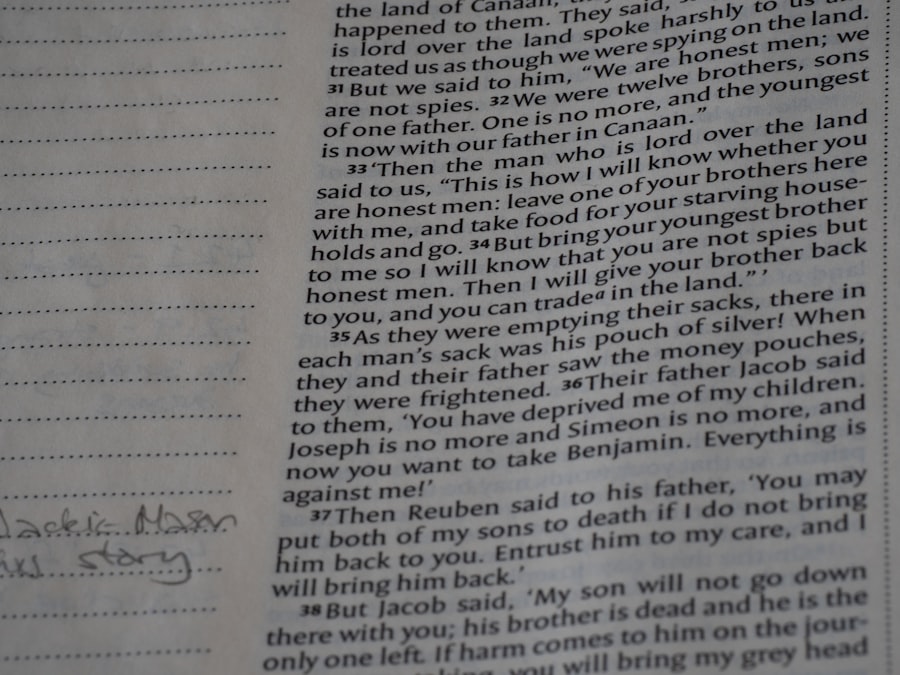 the land of Canaan, they
happened to them. They said,
is lord over the land spoke harshly to us
treated us as though we were spying on the land.
31 But we said to him, “We are honest men; we
are not spies. 32 We were twelve brothers, sons
of one father. One is no more, and the youngest
is now with our father in Canaan.”
33 ‘Then the man who is lord over the land
said to us, “This is how I will know whether you
are honest men: leave one of your brothers here
with me, and take food for your starving house-
holds and go. 34 But bring your youngest brother
to me so I will know that you are not spies but
honest men. Then I will give your brother back
to you, and you can trade a in the land.” ’
35 As they were emptying their sacks, there in
each man’s sack was his pouch of silver! When
they and their father saw the money pouches,
they were frightened. 36 Their father Jacob said
to them, ‘You have deprived me of my children.
Joseph is no more and Simeon is no more, and
now you want to take Benjamin. Everything is
against me!’
37 Then Reuben said to his father, ‘You may
put both of my sons to death if I do not bring
him back to you. Entrust him to my care, and I
will bring him back.’
38 But Jacob said, ‘My son will not go down
there with you; his brother is dead and he is the
only one left. If harm comes to him on the jour-
you will bring my grey head
Jackie Mason
story